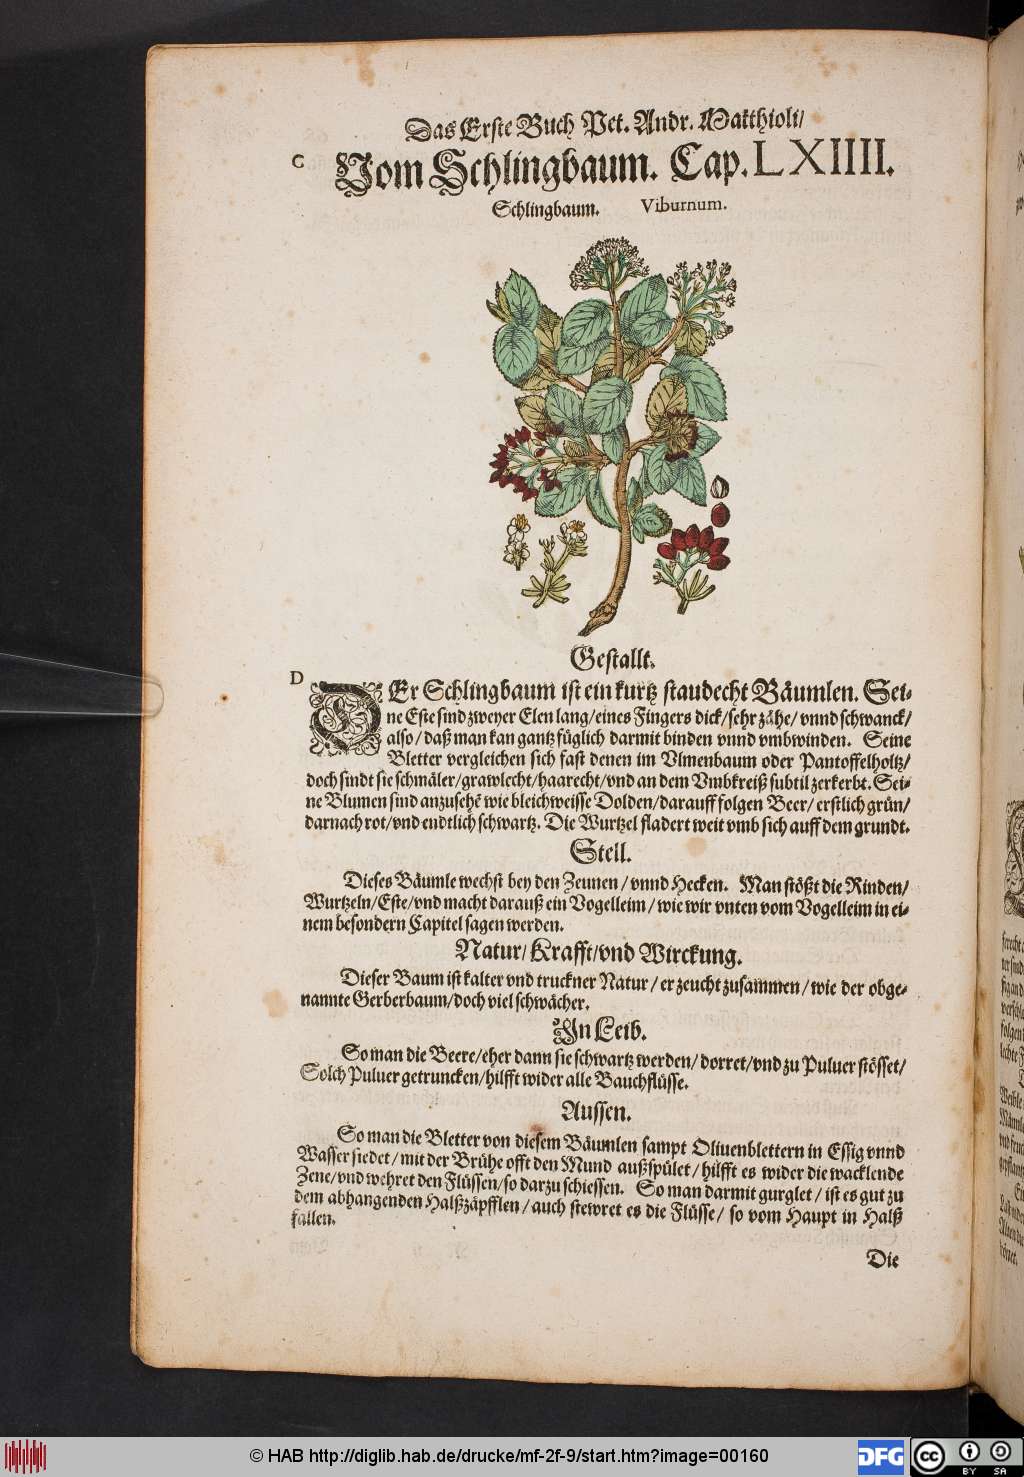 Das Erste Buch Pet. Andr. Matthioli/
C
Vom Schlingbaum. Cap. LXIIII.
Schlingbaum. Viburnum.
Gestallt.
D
DEr Schlingbaum ist ein kurtz staudecht Bäumlen. Sei-
ne Este sind zweyer Elen lang/ eines Fingers dick/ sehr zähe/ vnnd schwanck/
also/ daß man kan gantz füglich darmit binden vnnd vmbwinden. Seine
Bletter vergleichen sich fast denen im Vlmenbaum oder Pantoffelholtz/
doch sindt sie schmäler/ grawlecht/ haarecht/ vnd an dem Vmbkreiß subtil zerkerbt. Sei-
ne Blumen sind anzusehē wie bleichweisse Dolden/ darauff folgen Beer/ erstlich grün/
darnach rot/ vnd endtlich schwartz. Die Wurtzel fladert weit vmb sich auff dem grundt.
Stell.
Dieses Bäumle wechst bey den Zeunen/ vnnd Hecken. Man stößt die Rinden/
Wurtzeln/ Este/ vnd macht darauß ein Vogelleim/ wie wir vnten vom Vogelleim in ei-
nem besondern Capitel sagen werden.
Natur/ Krafft/ vnd Wirckung.
Dieser Baum ist kalter vnd truckner Natur/ er zeucht zusammen/ wie der obge-
nannte Gerberbaum/ doch viel schwächer.
In Leib.
So man die Beere/ eher dann sie schwartz werden/ dorret/ vnd zu Puluer stösset/
Solch Puluer getruncken/ hilfft wider alle Bauchflüsse.
Aussen.
So man die Bletter von diesem Bäumlen sampt Oliuenblettern in Essig vnnd
Wasser siedet/ mit der Brühe offt den Mund außspület/ hilfft es wider die wacklende
Zene/ vnd wehret den Flüssen/ so darzu schiessen. So man darmit gurglet/ ist es gut zu
dem abhangenden Halßzäpfflen/ auch stewret es die Flüsse/ so vom Haupt in Halß
fallen.
Die
© HAB http://diglib.hab.de/drucke/mf-2f-9/start.htm?image=00160
DFG
cc
BY SA